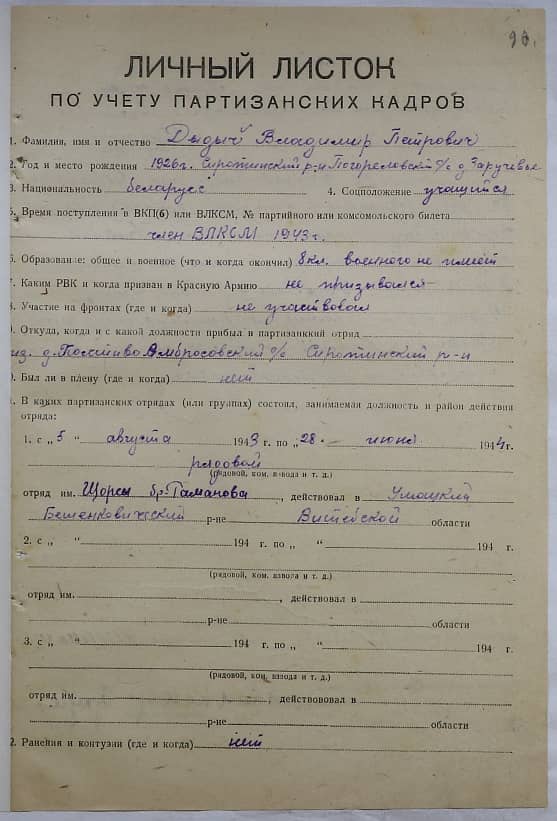 90.
ЛИЧНЫЙ ЛИСТОК
ПО УЧЕТУ ПАРТИЗАНСКИХ КАДРОВ
1. Фамилия, имя и отчество Дыдыч Владимир Петрович
2. Год и место рождения 1926г. Сиротинский р-н Погореловский с/с д. Заручевье
3. Национальность беларусс 4. Соцположение учащийся
5. Время поступления в ВКП(б) или ВЛКСМ, № партийного или комсомольского билета
член ВЛКСМ 1943 г.
6. Образование: общее и военное (что и когда окончил) 8 кл. военного не имеет
7. Каким РВК и когда призван в Красную Армию не призывался
8. Участие на фронтах (где и когда) не участвовал
9. Откуда, когда и с какой должности прибыл в партизанккий отряд
из д. Амбросовский с/с Сиротинский р-н
0. Был ли в плену (где и когда) нет
1. В каких партизанских отрядах (или группах) состоял, занимаемая должность и район действия
отряда:
1. с „ 5 “ августа 1943 г. по „ 28 “ июня 1944 г.
рядовой
(рядовой, ком. взвода и т. д.)
отряд им. Щорсы бр. Гаманова, действовал в
Бешенковичский р-не Витебской области
2. с „ “ 194 г. по „ “ 194 г.
(рядовой, ком. взвода и т. д.)
отряд им. , действовал в
р-не области
3. с „ “ 194 г. по „ “ 194 г.
(рядовой, ком. взвода и т. д.)
отряд им. , действововал в
р-не области
2. Ранения и контузии (где и когда) нет